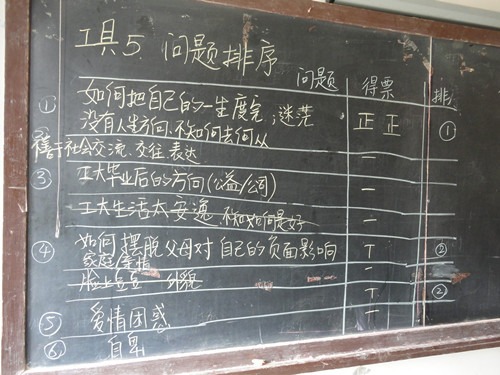 工具5 问题排序
问题 得票 排
① 如何把自己的一生度完;迷茫 正 正 ①
没有人生方向、不知何去何从
不善于社会交流、交往、表达 一
③ 工大毕业后的方向(公益/公司) 一
工大生活太安逸、不知如何是好 一
④ 如何摆脱父母对自己的负面影响 T ②
家庭 一
脸上豆豆 外貌 T ②
⑤ 爱情困惑 一
⑥ 自卑